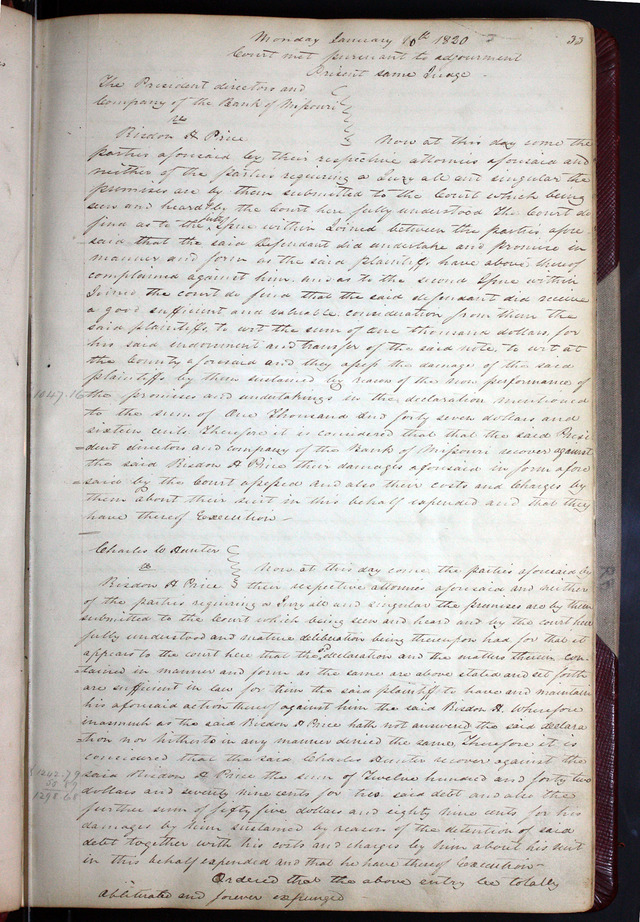 Monday January 10th 1820
33
Court met pursuant to adjourment
Present same Judge
The President directors and
Company of the Bank of Missouri
vs
Risdon H Price
Now at this day come the
parties aforesaid by their respective attornies aforesaid and
neither of the parties requiring a Jury all and singular the
premises are by them submitted to the Court which being
seen and heard & by the Court here fully understood The Court do
find as to the first Issue within Joined between the parties afore-
said that the said Defendant did undertake and promise in
manner and form as the said plaintiffs have above thereof
complained against him. and as to the second Issue within
Joined the court do find that the said defendant did receive
a good sufficient and valuable consideration from them the
said plaintiffs, to wit the sum of one thousand dollars, for
his said indorsment and transfer of the said note, to wit at
the County aforesaid and they assess the damages of the said
plaintiffs by them sustained by reason of the non performance of
1047.16
the promises and undertakings in the declaration mentioned
to the sum of One Thousand and forty seven dollars and
sixteen cents Therefore it is considered that that the said Presi-
dent directors and company of the Bank of Missouri recover against
the said Risdon H Price their damages aforesaid in form afore
said by the Court assessed and also their costs and Charges by
them about their suit in this behalf expended and that they
have thereof Execution -
Charles W Hunter
vs
Risdon H Price
Now at this day come the parties aforesaid by
their respective attornies aforesaid and neither
of the parties requiring a Jury all and singular the premises are by them
submitted to the Court which being seen and heard and by the court here
fully understood and mature deliberation being thereupon had for that it
appears to the court here that the declaration and the matters therein con-
tained in manner and form as the same are above stated and set forth
are sufficient in law for him the said plaintiff to have and maintain
his aforesaid action thereof against him the said Risdon H. Wherefore
inasmuch as the said Risdon H Price hath not answered the said declara
tion nor hitherto in any manner denied the same Therefore it is
considered that the said Charles Hunter recover against the
1242.79
55.89
1298.68
said Risdon H Price the sum of Twelve hundred and forty two
dollars and seventy nine cents for his said debt and also the
further sum of fifty five dollars and eighty nine cents for his
damages by him sustained by reason of the detention of said
debt together with his costs and charges by him about his suit
in this behalf expended and that he have thereof Execution -
Ordered that the above entry be totally
obliterated and forever expunged